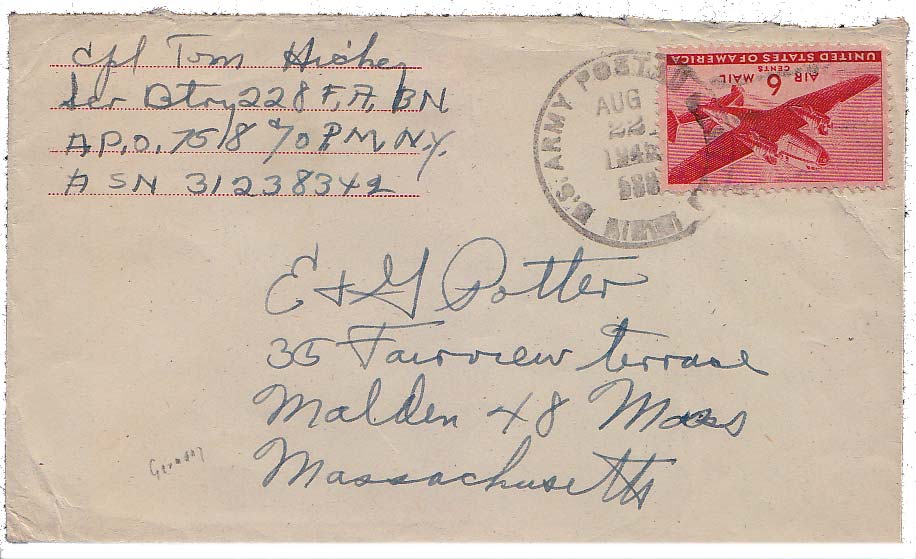 Cpl Tom Hickey
Ser Btry 228 F.A. BN
A.P.O. 758 c/o P.M. N.Y.
A S N 31238342
U.S. ARMY POSTAL
AUG
22
194
UNITED STATES OF AMERICA
6 CENTS AIR MAIL
E + G Potter
35 Fairview terrace
Malden 48 Mass
Massachusetts
Germany